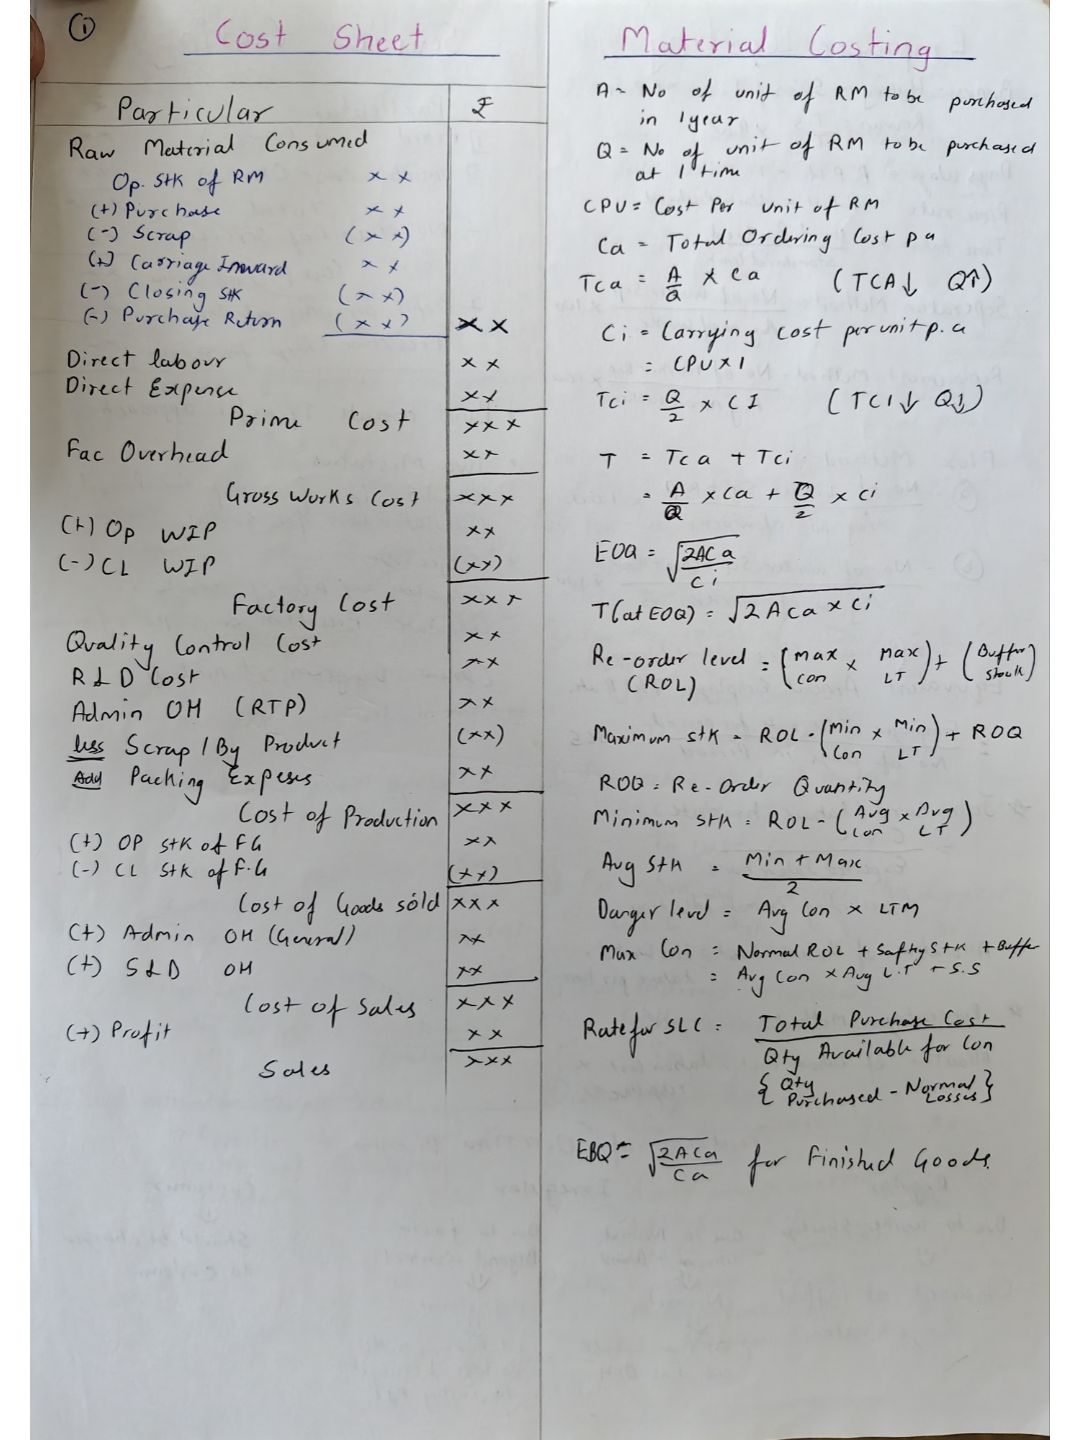 ①
Cost Sheet
Particular ₹
Raw Material Consumed
Op. Stk of RM x x
(+) Purchase x x
(-) Scrap (x x)
(+) Carriage Inward x x
(-) Closing Stk (x x)
(-) Purchase Return (x x) x x
Direct labour x x
Direct Expense x x
Prime Cost x x x
Fac Overhead x x
Gross Works Cost x x x
(+) Op WIP x x
(-) CL WIP (x x)
Factory Cost x x x
Quality Control Cost x x
R & D Cost x x
Admin OH (RTP) x x
less Scrap / By Product (x x)
Add Packing Expeses x x
Cost of Production x x x
(+) OP Stk of FG x x
(-) CL Stk of F.G (x x)
Cost of Goods sold x x x
(+) Admin OH (General) x x
(+) S & D OH x x
Cost of Sales x x x
(+) Profit x x
Sales x x x
Material Costing
A = No of unit of RM to be purchased
in 1 year
Q = No of unit of RM to be purchased
at 1 time
CPU = Cost Per unit of RM
Ca = Total Ordering Cost pa
Tca = A/Q x Ca (TCA↓ Q↑)
Ci = Carrying cost per unit p.a
= CPU x I
Tci = Q/2 x CI (TCI↓ Q↓)
T = Tca + Tci
= A/Q x Ca + Q/2 x Ci
EOQ = √2ACa/Ci
T(at EOQ) = √2ACa x Ci
Re-order level = (Max Con x Max LT) + (Buffer Stock)
(ROL)
Maximum Stk = ROL - (Min Con x Min LT) + ROQ
ROQ = Re-Order Quantity
Minimum Stk = ROL - (Avg Con x Avg LT)
Avg Stk = Min + Max / 2
Danger level = Avg Con x LTM
Max Con = Normal ROL + Safty Stk + Buffer
= Avg Con x Avg L.T + S.S
Rate for SLC = Total Purchase Cost / Qty Available for Con
{Qty Purchased - Normal Losses}
EBQ = √2ACa/Ca for Finished Goods.